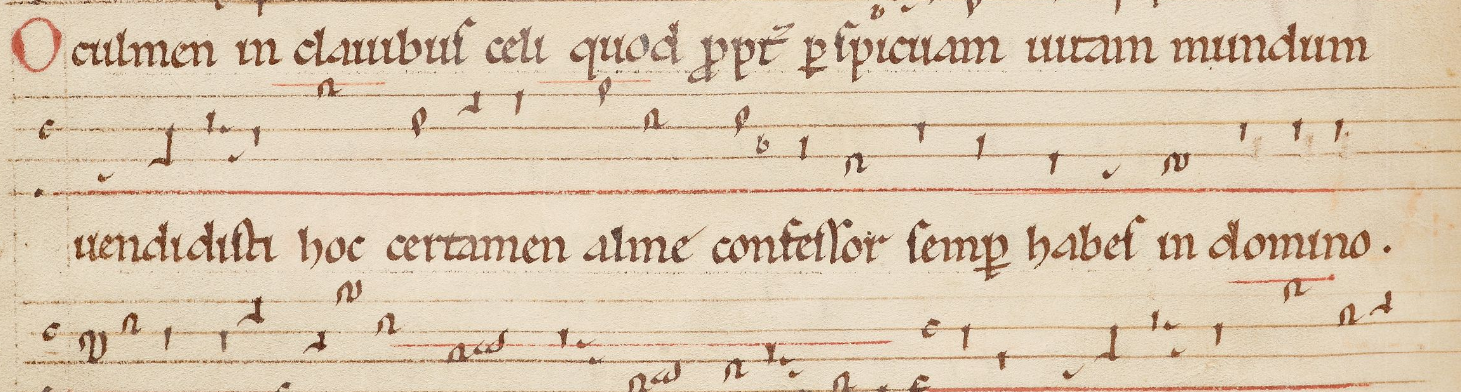 O culmen in clauibus celi quod ꝓpt̄ ꝑspicuam uitam mundum
uendidisti hoc certamen alme confessor semꝑ habes in domino.